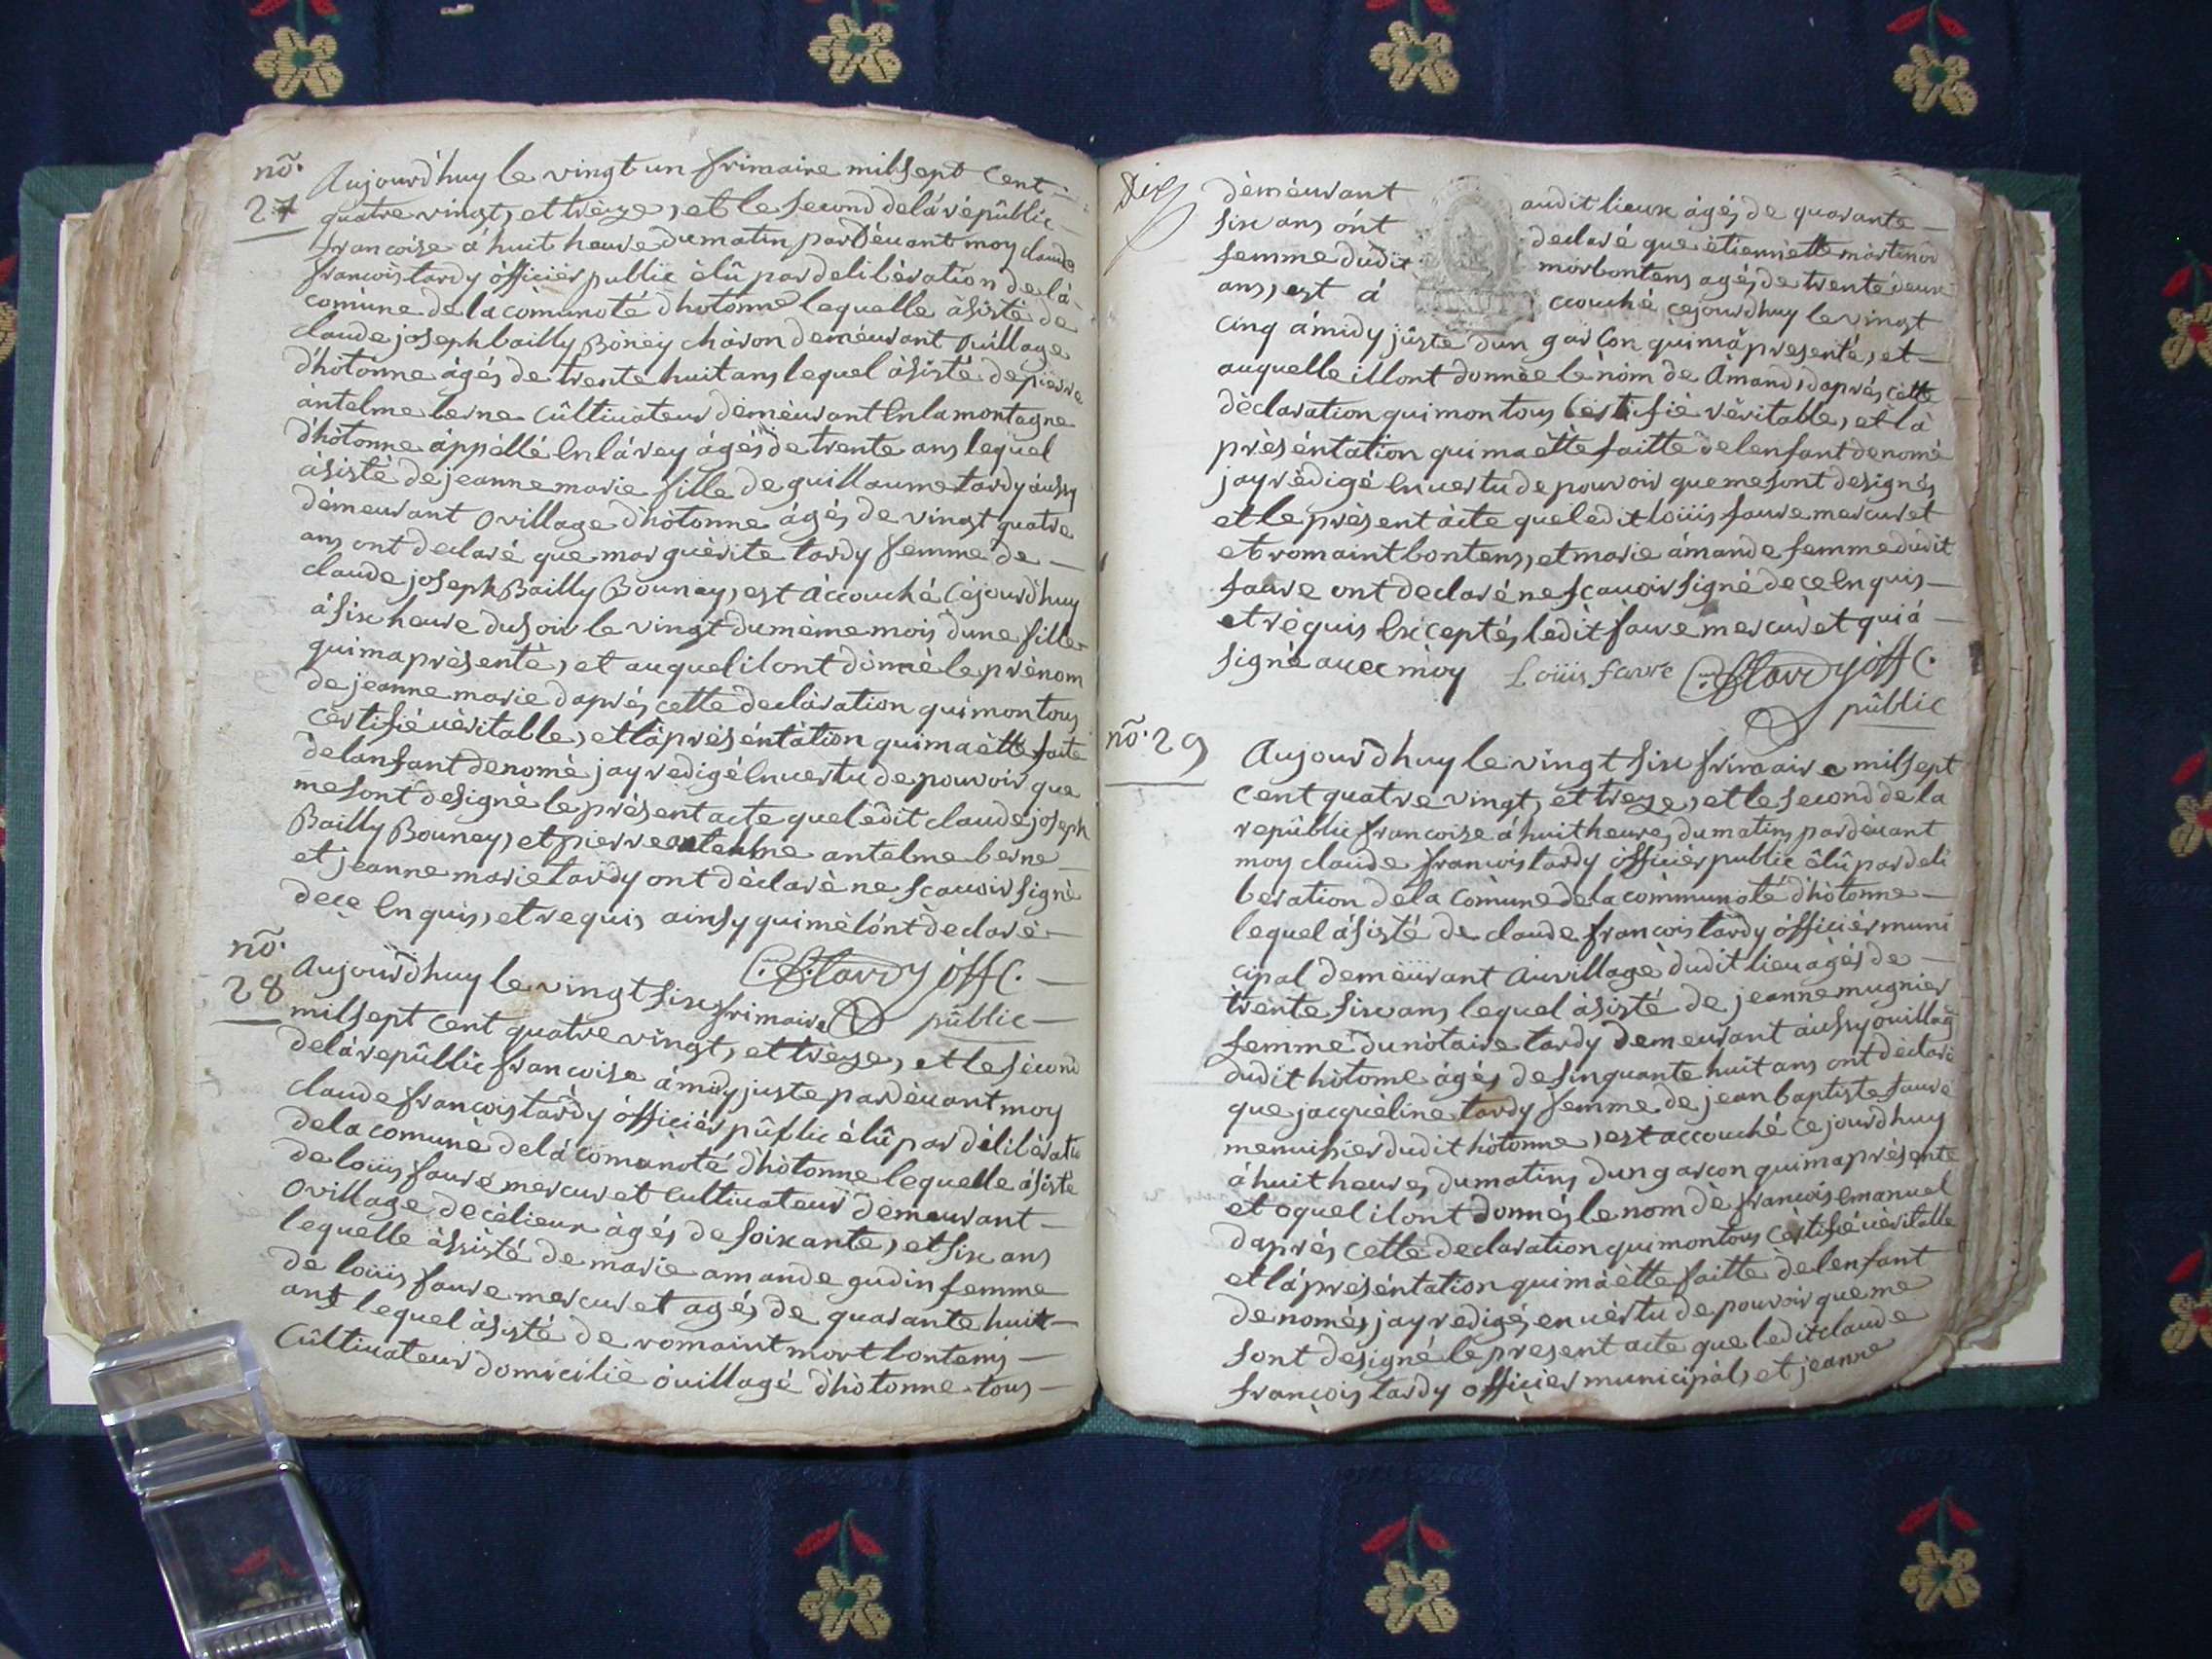 nõ.
27
Aujourd'huy le vingt un frimaire mil sept Cent
quatre vingt, et trèize, et le second de lá rèpûblic
francoise á huit heure du matin par Dèuant moy claude
francois tardy ôfficièr publiic èlû par delibèration de lá
comùne de la comùnoté d'hotonne lequelle àsisté de
claude joseph bailly Bônëy chàron demèurant ouillage
d'hòtonne àgés de trente huit ans lequel àsisté de pierre
àntelme berne Cûltiuateur dèmèurant en la montagne
d'hòtonne àppèllé en lá vey ágés de trente ans lequel
àsistè de jeanne marie fille de guillaume tardy áussy
dèmeurant o village d'hòtonne ágés de vingt quatre
ans ont declaré que marguèrite tardy femme de
claude joseph Bailly Bounay, est Accouché Cèjourd'huy
à six heure du soir le vingt du mème mois d'une fille
qui ma prèsentè, et auquel il ont dònnè le prènom
de jeanne marie d'aprés cette declàration qui mon tous
cèrtifié vèritable, et là prèséntàtion qui ma ètte faite
de lanfant denomè jay redigé en uertu de pouvoir que
me sont designè le prèsent acte que ledit claude joseph
Bailly Bounay, et pierre antelme berne
et jeanne marie tardy ont dèclarè ne scauoir signè
de ce enquis, et requis ainsy qui mè lónt dèclarè
C. f. tardy óff C.
public
nõ.
28
Aujourd'huy le vingt six frimaire
mil sept cent quatre vingt, et trèze, et le sècond
de lá repûblic francoise á midy juste par dèuant moy
claude francois tardy ófficiér pûblic èlû par dèlibèratio
de la comunè de lá comùnoté d'hòtonne lequelle ásisté
de loüis faure mercuret cultiuateur dèmeurant
o village de cèlieux àgés de soixante, et six ans
lequelle àssisté de marie amande gudin femme
de loüis faure mercuret agés de quarante huit
ans lequel àsisté de romaint mort bontems
Cûltiuateur domicilié òuillagé d'hòtonne tous
dèmèurant audit lieux àgés de quarante
six ans ónt declaré que ètiennètte martinod
femme dudit morbontens agés de trente deux
ans, est á ccouché cejourdhuy le vingt
cinq ámidy jûste d'un garçon qui mà presenté, et
auquelle il lont donnèe le nòm de Amand, d'aprés cètte
dèclaration qui mon tous cèrtifié vèritable, et là
prèséntation qui ma ètté faitte de lenfant denomè
jay rèdigé en uertu de pouvoir que me sont designés
et le prèsent àcte que ledit loüis faure mercuret
et romaint bontens, et marie ámande femme dudit
faure ont declaré ne scauoir signé de ce enquis
et rèquis Excepté, ledit faure mercurèt qui á
signè auec mòy Loüis favre C. f. tardy óff C.
pûblic
nõ. 29
Aujourd'huy le vingt six frimaire mil sept
Cent quatre vingt, et treze, et le second de la
repûblic francoise á huit heure, du matin, par dèuant
moy claude francois tardy òfficièr public èlû par deli
beration de la comùne de la còmmunoté d'hòtonne
lequel ásisté de claude francois tàrdy òfficièr muni
cipal demèürant àu villagè dudit lieu àgés de
trente six ans lequel àsisté de jeanne mugnier
femme du nòtaire tardy demeurant áussy ouillag
dudit hòtonne àgés de sinquante huit ans ont dèclarè
que jacquèline tardy femme de jean baptiste faure
menuisier dudit hòtonne, est accouché ce jourd'huy
á huit heure, du matin, d'un garçon qui ma prèsente
et oquel il ont donnés le nom dè francois emanuel
d'aprés cette declaration qui mon tous cèrtifié vèritable
et lá prèséntation qui má ètte faitte de lenfant
denomés jay redigé, en vèrtu de pouvoir que me
sont dèsigné le present acte que ledit claude
françois tardy officier municipàl, et jeanne